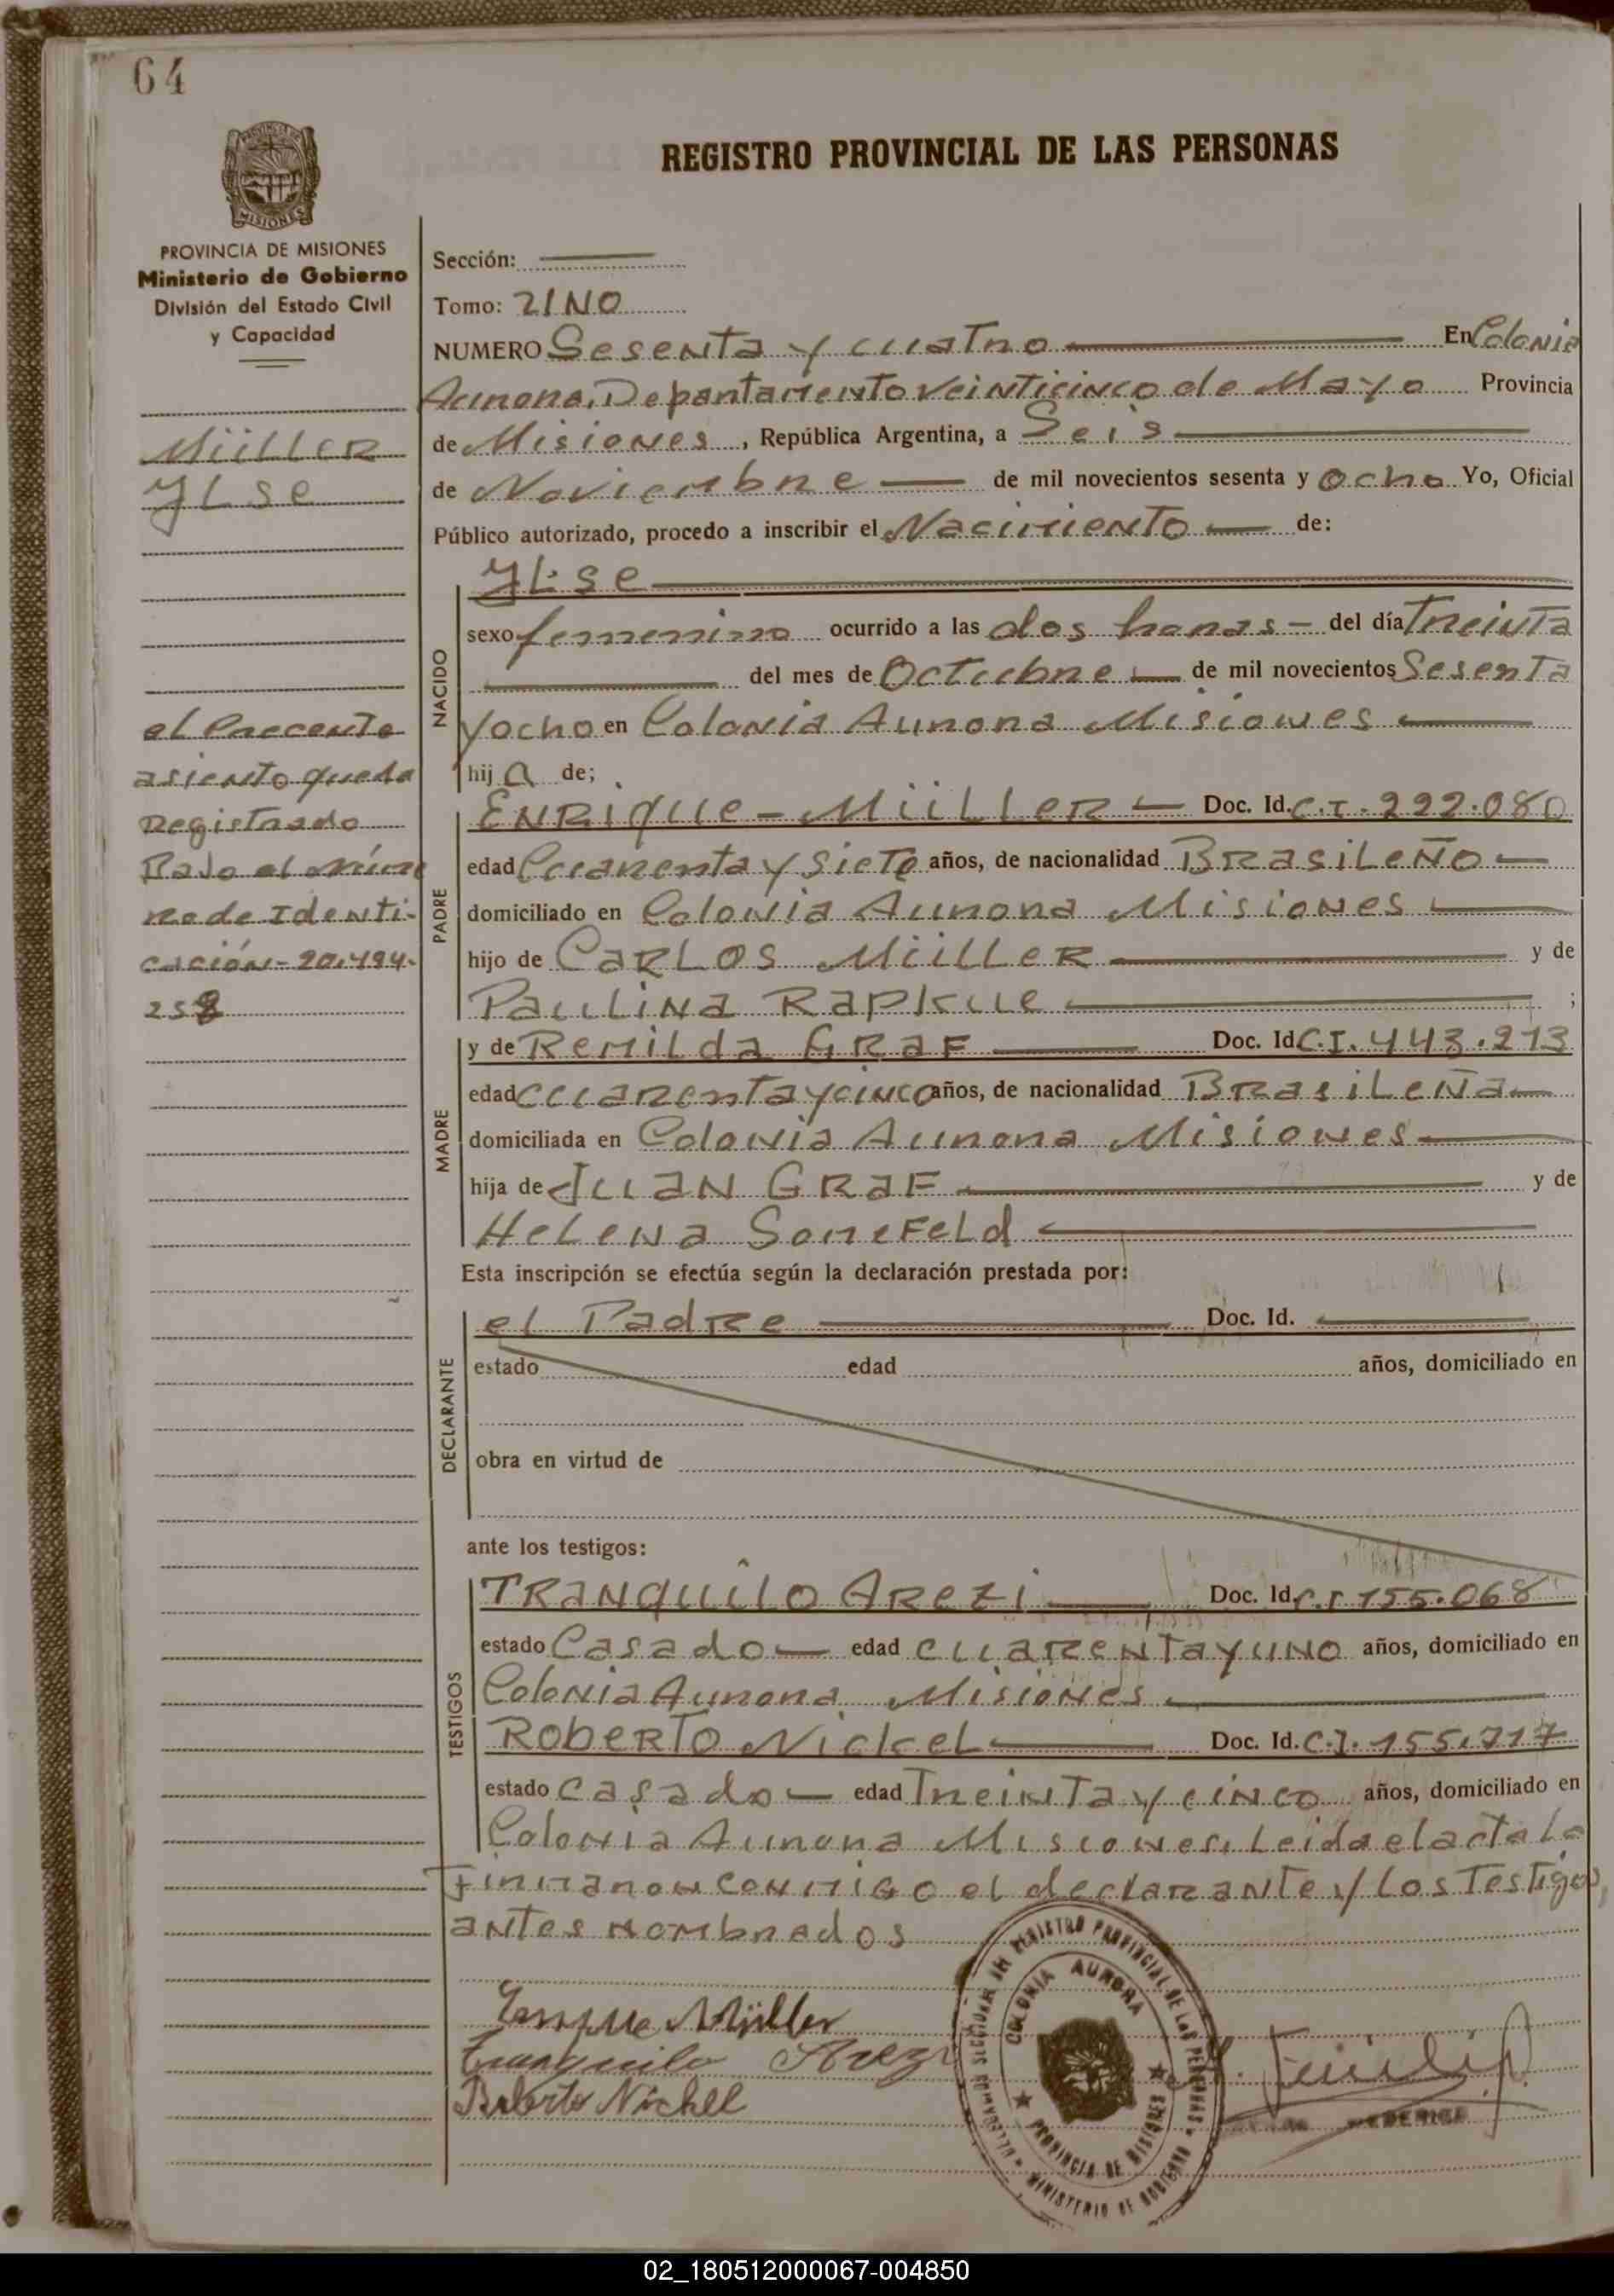 64
REGISTRO PROVINCIAL DE LAS PERSONAS
MISIONES
PROVINCIA DE MISIONES
Ministerio de Gobierno
División del Estado Civil
y Capacidad
Müller
Ylse
el Precente
asiento queda
Registrado
Bajo el núme
ro de Identi-
cación - 20.494.
258
Sección:
Tomo: UNO
NUMERO Sesenta y cuatro En Colonia
Aurora, Departamento veinticinco de Mayo Provincia
de Misiones, República Argentina, a Seis
de Noviembre de mil novecientos sesenta y ocho Yo, Oficial
Público autorizado, procedo a inscribir el Nacimiento de:
NACIDO
Ylse
sexo femenino ocurrido a las dos horas - del día Treinta
del mes de Octubre de mil novecientos Sesenta
y ocho en Colonia Aurora Misiones
hija de;
PADRE
ENRique - Müller Doc. Id. C.I. 222.080
edad Cuarenta y Siete años, de nacionalidad BRasileño
domiciliado en Colonia Aurora Misiones
hijo de CaRLOS Müller y de
Paulina Rapkue ;
MADRE
y de Remilda GRaF Doc. Id C.I. 443.213
edad cuarenta y cinco años, de nacionalidad BRasileña
domiciliada en Colonia Aurora Misiones
hija de Juan GRaF y de
Helena SomeFeld
Esta inscripción se efectúa según la declaración prestada por:
DECLARANTE
el Padre Doc. Id.
estado edad años, domiciliado en
obra en virtud de
ante los testigos:
TESTIGOS
TRanquîlo ARezi Doc. Id. C.I 155.068
estado Casado edad cuarenta y uno años, domiciliado en
Colonia Aurora Misiones
Roberto Nickel Doc. Id. C.I. 155.717
estado casado edad Treinta y cinco años, domiciliado en
Colonia Aurora Misiones. Leida el acta la
Firmaron conmigo el declarante y los Testigos,
antes nombrados
Enrique Müller
Tranquilo Arezi
Roberto Nickel
REGISTRO PROVINCIAL DE LAS PERSONAS
COLONIA AURORA
PROVINCIA DE MISIONES
MINISTERIO DE GOBIERNO
02_180512000067-004850